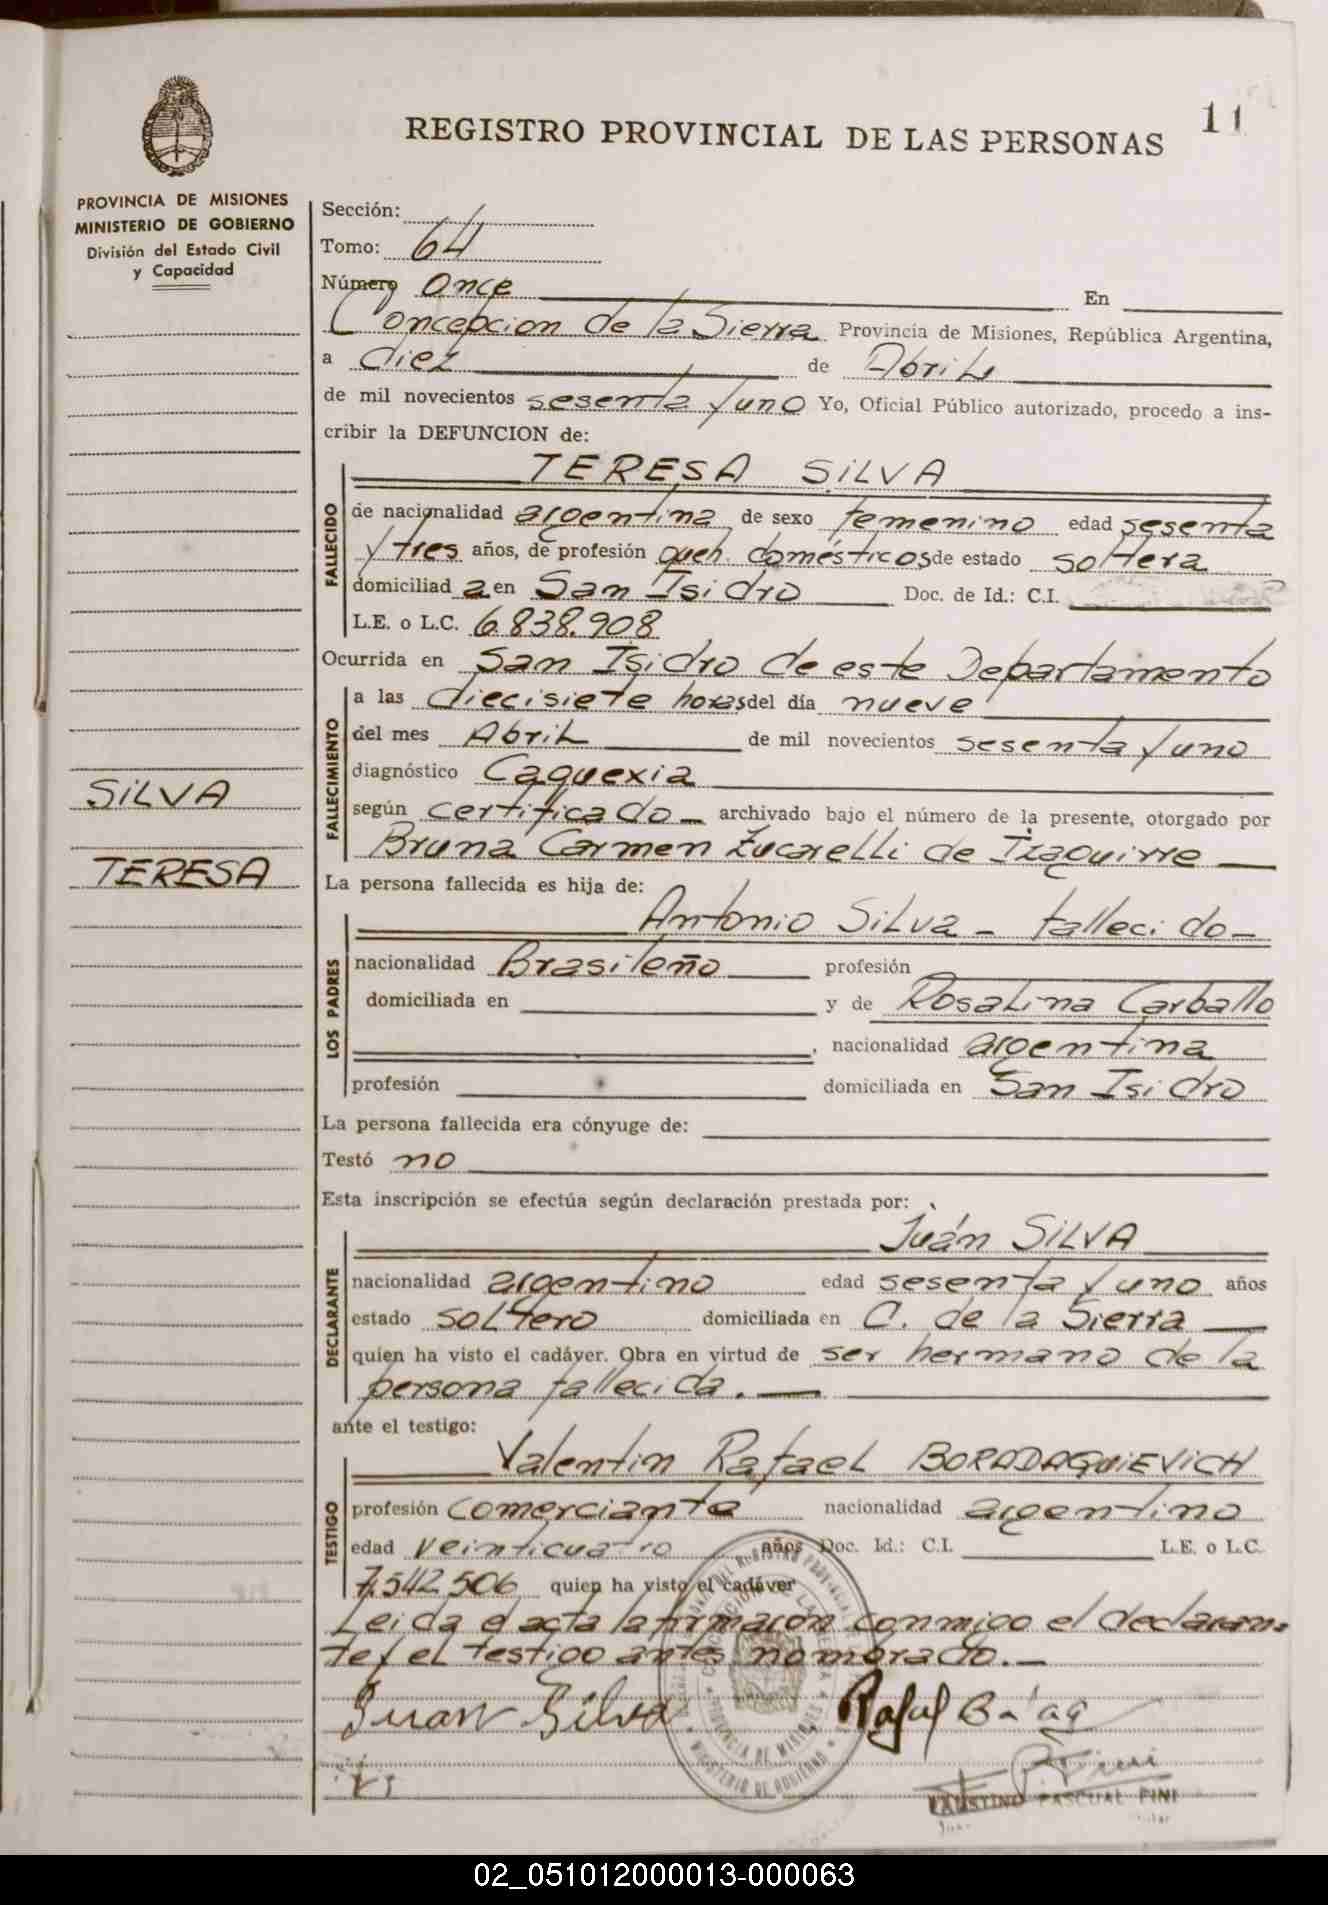 11
REGISTRO PROVINCIAL DE LAS PERSONAS
PROVINCIA DE MISIONES
MINISTERIO DE GOBIERNO
División del Estado Civil
y Capacidad
SILVA
TERESA
Sección:
Tomo: 64
Número Once En
Concepcion de la Sierra Provincia de Misiones, República Argentina,
a diez de Abril
de mil novecientos sesenta y uno Yo, Oficial Público autorizado, procedo a ins-
cribir la DEFUNCION de:
TERESA SILVA
FALLECIDO
de nacionalidad argentina de sexo femenino edad sesenta
y tres años, de profesión queh. domésticos de estado soltera
domiciliad a en San Isidro Doc. de Id.: C.I.
L.E. o L.C. 6.838.908
Ocurrida en San Isidro de este Departamento
FALLECIMIENTO
a las diecisiete horas del día nueve
del mes Abril de mil novecientos sesenta y uno
diagnóstico Caquexia
según certificado archivado bajo el número de la presente, otorgado por
Bruna Carmen Zucarelli de Izaguirre
La persona fallecida es hija de:
LOS PADRES
Antonio Silva - fallecido -
nacionalidad Brasileño profesión
domiciliada en y de Rosalina Carballo
, nacionalidad argentina
profesión domiciliada en San Isidro
La persona fallecida era cónyuge de:
Testó no
Esta inscripción se efectúa según declaración prestada por:
DECLARANTE
Juán SILVA
nacionalidad argentino edad sesenta y uno años
estado soltero domiciliada en C. de la Sierra
quien ha visto el cadáver. Obra en virtud de ser hermano de la
persona fallecida.
ante el testigo:
TESTIGO
Valentin Rafael BORADAQUIEVICH
profesión comerciante nacionalidad argentino
edad veinticuatro años Doc. Id.: C.I. L.E. o L.C.
7.542.506 quien ha visto el cadáver
Leida el acta la firmaron conmigo el declaran-
te y el testigo antes nombrado.-
Juan Silva
FAUSTINO PASCUAL FINI
PROVINCIA DE MISIONES
MINISTERIO DE GOBIERNO
02_051012000013-000063